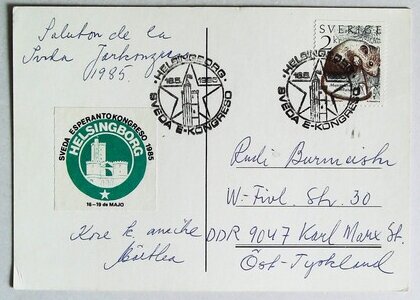 Saluton de la
Sveda Jarkongreso
1985.
SVEDA ESPERANTOKONGRESO 1985
HELSINGBORG
16–19 de MAJO
Kore k. amike
HELSINGBORG
18.5 1985
SVEDA E-KONGRESO
SVERIGE
2
HELSINGBORG
18.5
SVEDA E-KONGRESO
Rudi Burmeister
Str. 30
DDR 9047 Karl Marx St.
Öst-Tyskland